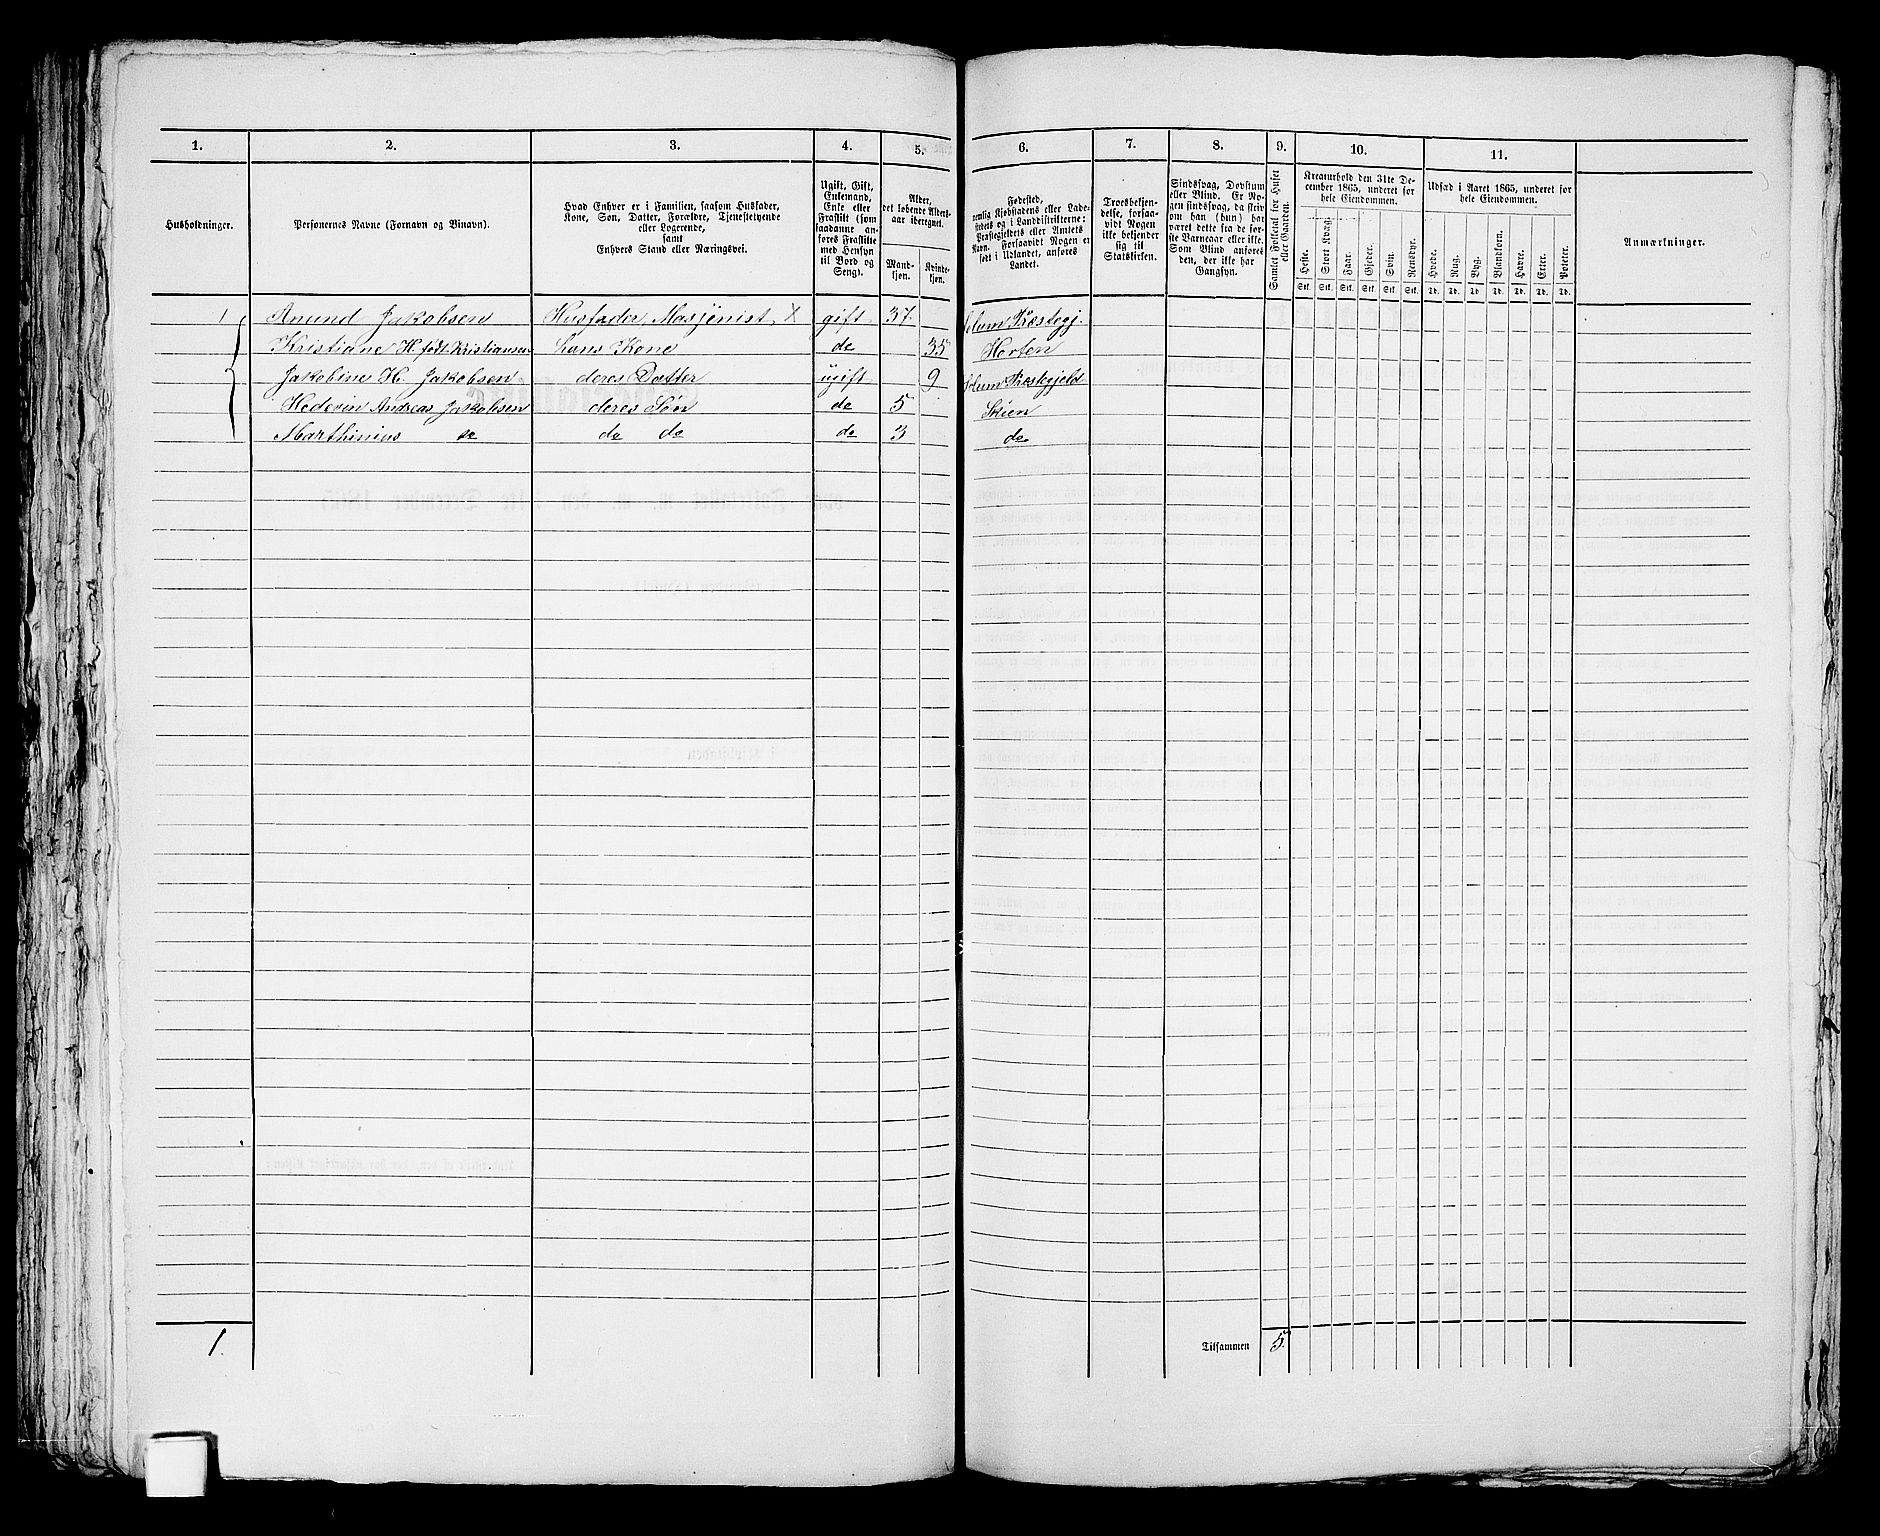 1. 2. 3. 4. 5. 6. 7. 8. 9. 10. 11.
Husholdninger.
Personernes Navne (Fornavn og Binavn).
Hvad Enhver er i Familien, saasom Husfader,
Kone, Søn, Datter, Forældre, Tjenestetyende
eller Logerende,
samt
Enhvers Stand eller Næringsvei.
Ugift, Gift,
Enkemand,
Enke eller
Fraskilt (som
saadanne an-
føres Fraskilte
med Hensyn
til Bord og
Seng).
Alder,
det løbende Alders-
aar iberegnet.
Mand-
kjøn.
Kvinde-
kjøn.
Fødested,
nemlig Kjøbstadens eller Lade-
stedets og i Landdistrikterne:
Præstegjeldets eller Amtets
Navn. Forsaavidt Nogen er
født i Udlandet, anføres
Landet.
Troesbekjen-
delse, forsaa-
vidt Nogen
ikke bekjender
sig til
Statskirken.
Sindssvag, Døvstum
eller Blind. Er No-
gen sindssvag, da skriv
om han (hun) har
været dette fra de før-
ste Barneaar eller ikke.
Som Blind anføres
den, der ikke har
Gangsyn.
Samlet Folketal for Huset
eller Gaarden.
Kreaturhold den 31te De-
cember 1865, underet for
hele Eiendommen.
Heste. Stort Kvæg. Faar. Gjeder. Svin. Rensdyr.
Stk. Stk. Stk. Stk. Stk. Stk.
Udsæd i Aaret 1865, underet for
hele Eiendommen.
Hvede. Rug. Byg. Blandkorn. Havre. Erter. Poteter.
Td. Td. Td. Td. Td. Td. Td.
Anmærkninger.
1 Anund Jakobsen Husfader, Masjenist X gift 37 Solum Præstegj.
Kristiane H. født Kristiansen hans Kone do 35 Horten
Jakobine H. Jakobsen deres Datter ugift 9 Solum Præstgjeld
Andreas Jakobsen deres Søn do 5 Skien
Marthinius do do do do 3 do
1. Tilsammen 5.